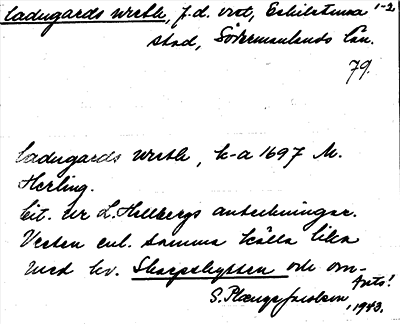 Ladugårds wretk, f.d. vret, Eskilstuna 1-2
stad, Södermanlands län.
79.
Ladugårds wretk, k-a 1697 M.
Herling.
Cit. ur L. Hellbergs anteckningar.
Vreten enl. samma källa lika
med kv. Skarpskytten och om-
fets!
S. Plænge Jacobson, 1943.